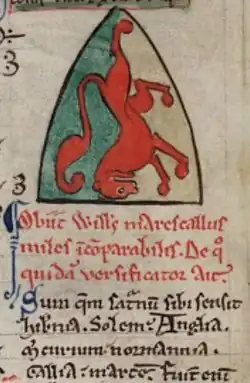 Obiit Will's marescallus
miles icōparabilis. De q°
quidā versificator ait.
Sum qm̄ satnū sibi sensit
hibnia. Solem. Anglia.
M̄curium normannia.
Gallia marcē. Fuit enī